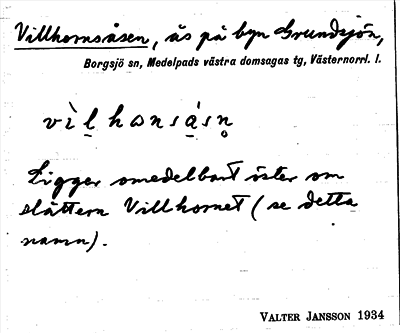 Villhornsåsen, ås på byn Grundsjön,
Borgsjö sn, Medelpads västra domsagas tg, Västernorrl. l.
vìl̠hωnsá̠sn̥
Ligger omedelbart öster om
slåttern Villhornet (se detta
namn).
VALTER JANSSON 1934